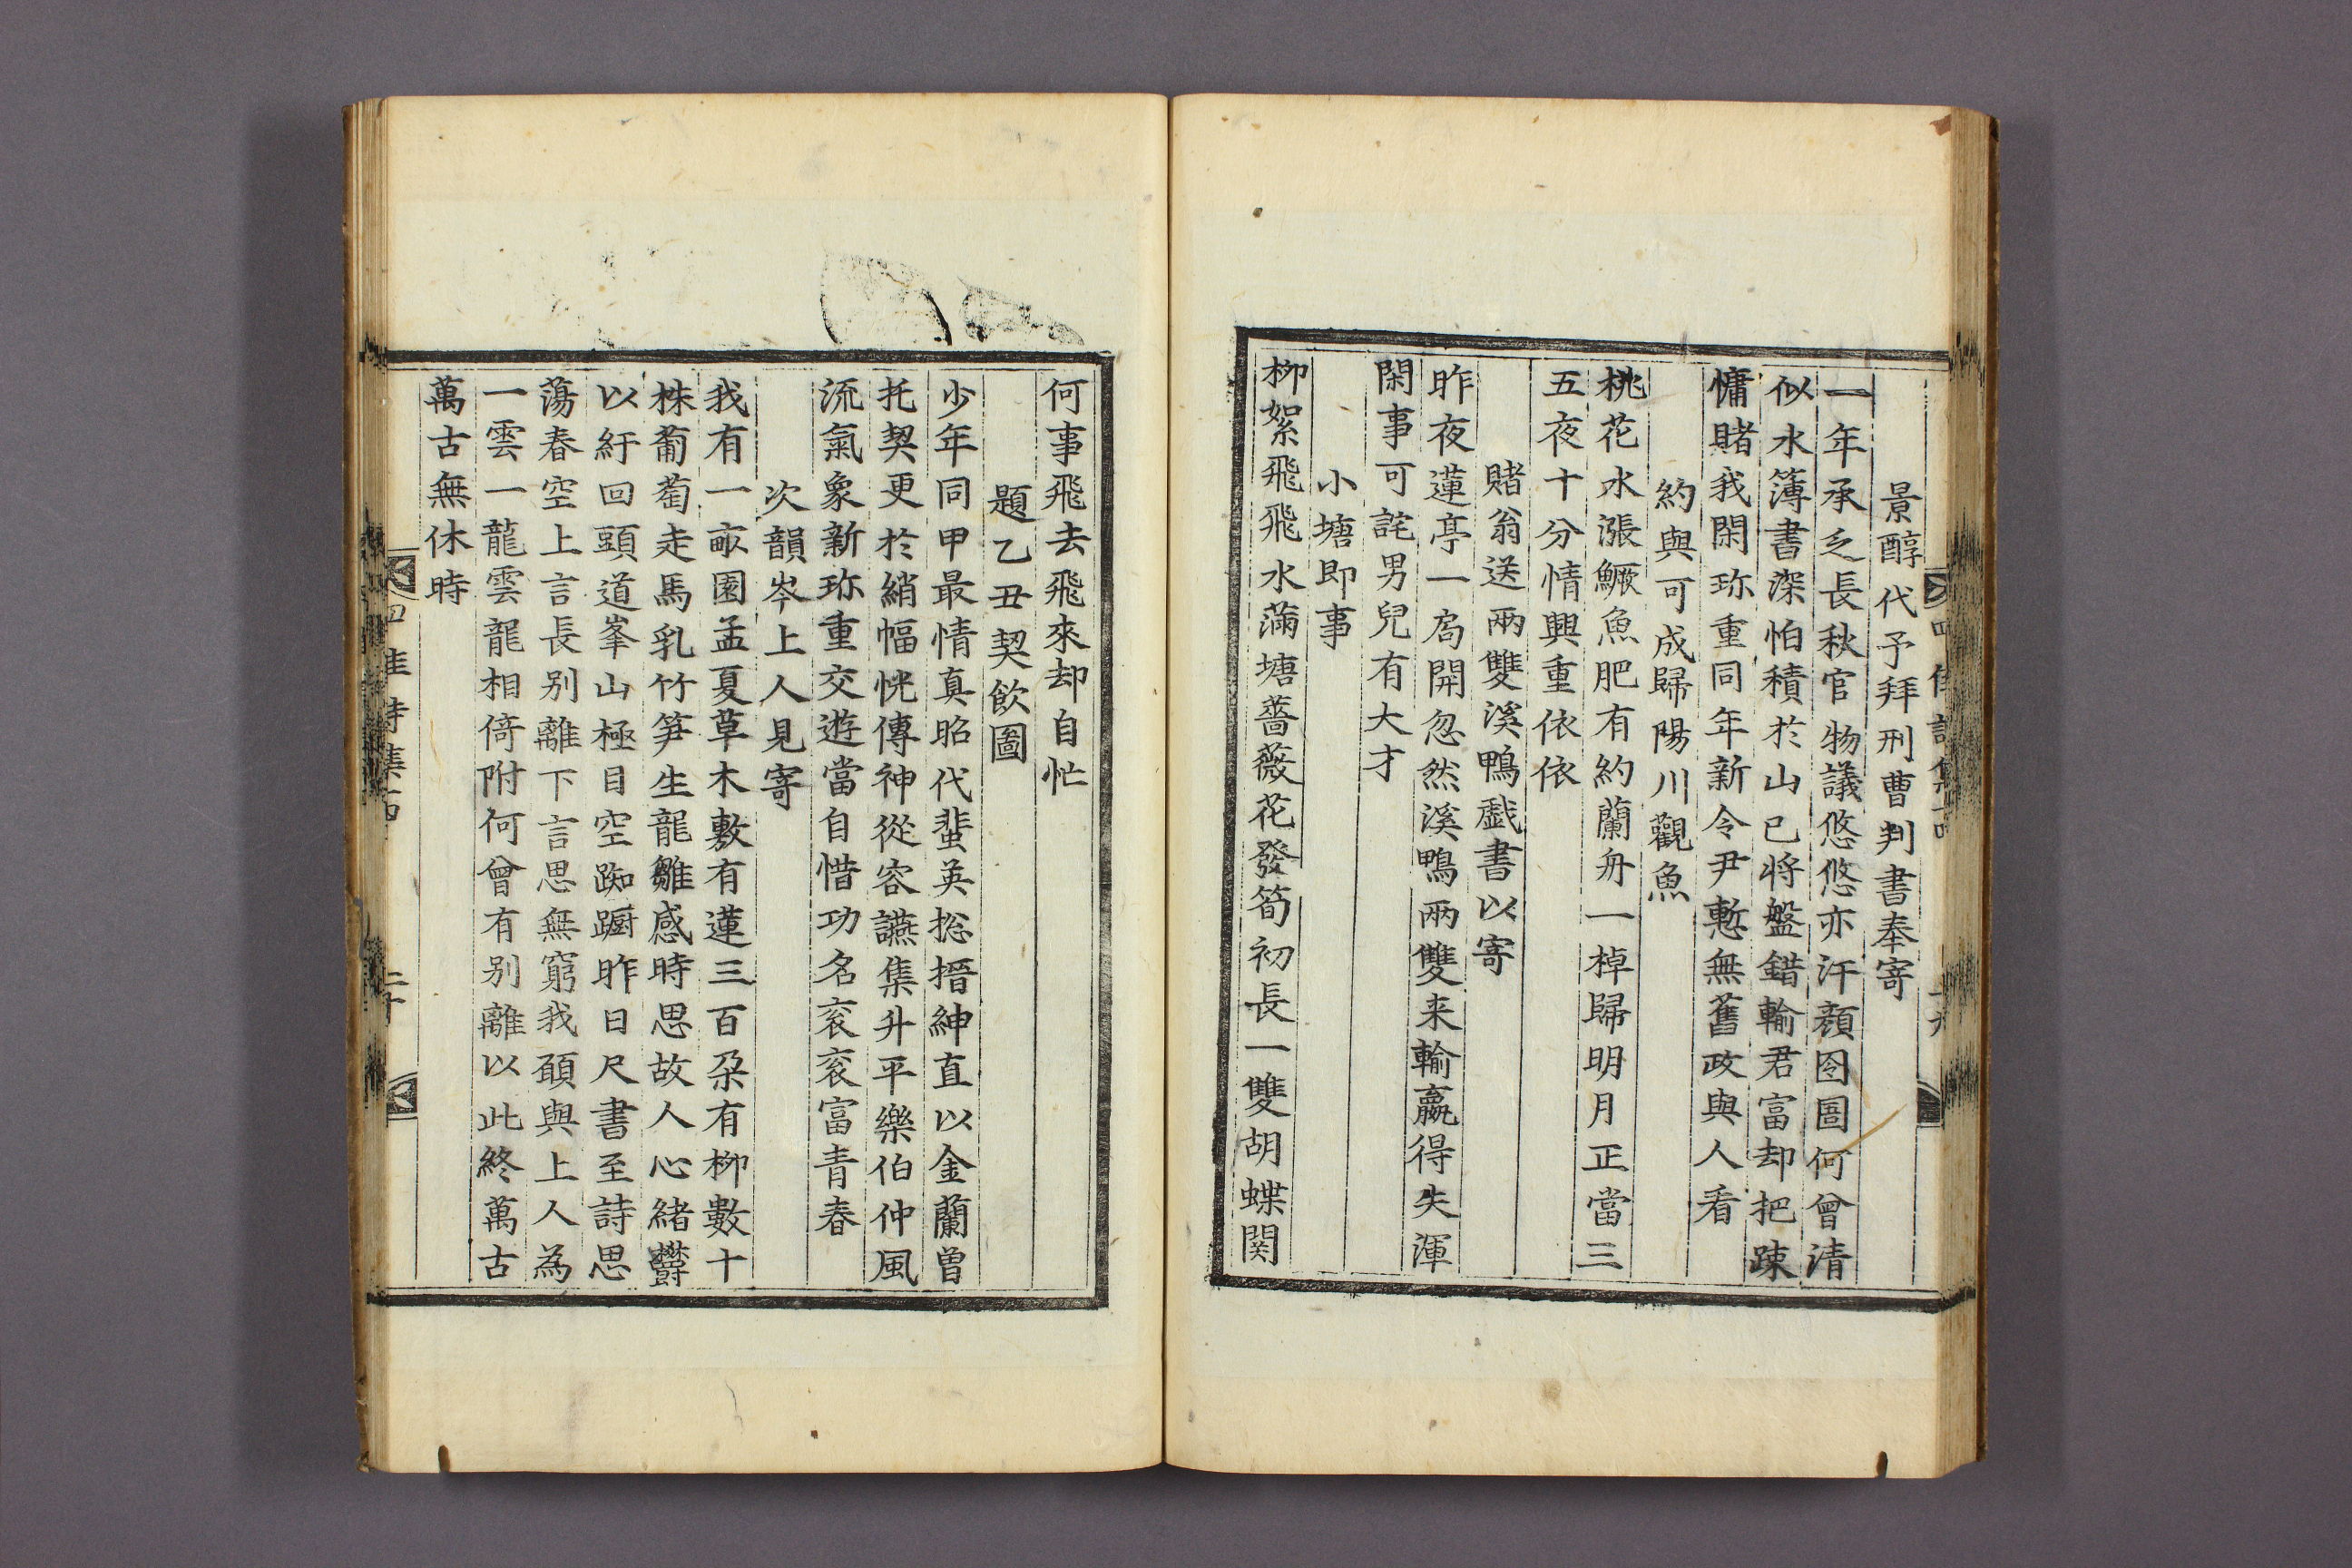 景醇代予拜刑曹判書奉寄
一年承乏長秋官物議悠悠亦汗顔囹圄何曾清
似水簿書深怕積於山已将盤錯輸君富却把踈
慵賭我閑珎重同年新令尹慙無舊政與人看
約與可成歸陽川觀魚
桃花水漲鱖魚肥有約蘭舟一棹歸明月正當三
五夜十分情興重依依
賭翁送兩雙溪鴨戯書以寄
昨夜蓮亭一局開忽然溪鴨兩雙来輸嬴得失渾
閑事可詫男兒有大才
小塘即事
柳絮飛飛水滿塘薔薇花發筍初長一雙胡蝶関
何事飛去飛來却自忙
題乙丑契飮圖
少年同甲最情真昭代蜚英揔搢紳直以金蘭曽
托契更於綃幅恍傳神從容讌集升平樂伯仲風
流氣象新珎重交遊當自惜功名衮衮富青春
次韻岑上人見寄
我有一畝園孟夏草木敷有蓮三百朶有柳數十
株葡萄走馬乳竹笋生龍雛感時思故人心緒欝
以紆回頭道峯山極目空踟躕昨日尺書至詩思
蕩春空上言長别離下言思無窮我願與上人為
一雲一龍雲龍相倚附何曾有别離以此終萬古
萬古無休時
四佳詩集 二十